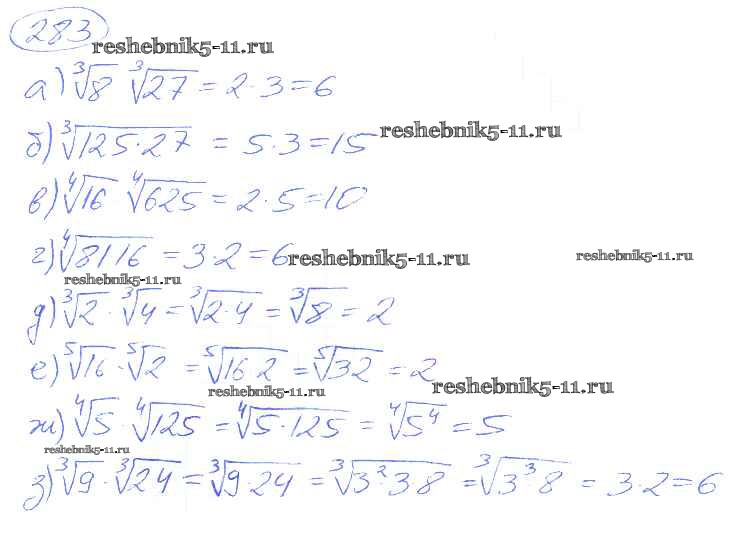 283
reshebnik5-11.ru
а) ∛8 ∛27 = 2·3=6
б) ∛125·27 = 5·3=15 reshebnik5-11.ru
в) ∜16 ∜625 = 2·5=10
г) ∜81 16 = 3·2=6 reshebnik5-11.ru reshebnik5-11.ru
reshebnik5-11.ru
д) ∛2 · ∛4 = ∛2·4 = ∛8 = 2
е) ⁵√16 · ⁵√2 = ⁵√16 2 = ⁵√32 = 2
reshebnik5-11.ru reshebnik5-11.ru
ж) ∜5 · ∜125 = ∜5·125 = ∜5⁴ = 5
reshebnik5-11.ru
з) ∛9 · ∛24 = ∛9·24 = ∛3²·3 8 = ∛3³ 8 = 3·2=6